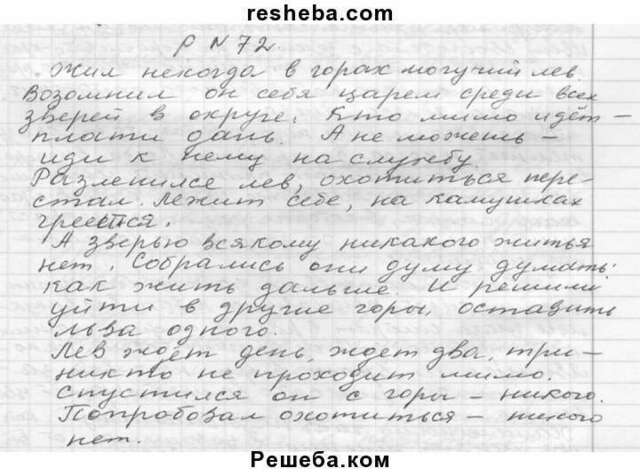 resheba.com
Р N 72
Жил некогда в горах могучий лев.
Возомнил он себя царем среди всех
зверей в округе: Кто мимо идёт –
плати дань. А не можешь –
иди к нему на службу.
Разленился лев, охотиться пере-
стал. Лежит себе, на камушках
греется.
А зверью всякому никакого житья
нет. Собрались они думу думать:
как жить дальше. И решили
уйти в другие горы, оставить
льва одного.
Лев ждет день, ждет два, три –
никто не проходит мимо.
Спустился он с горы – никого.
Попробовал охотиться – никого
нет.
Решеба.ком